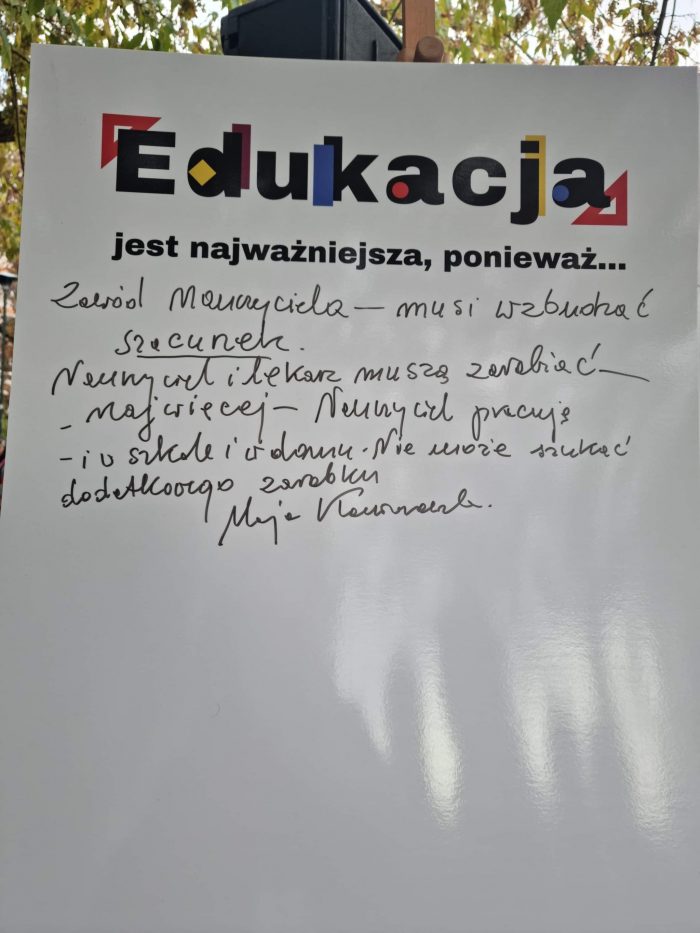 Edukacja
jest najważniejsza, ponieważ...
Zawód Nauczyciela — musi wzbudzać
szacunek.
Nauczyciel i lekarz muszą zarabiać —
- najwięcej — Nauczyciel pracuje
- i w szkole i w domu. Nie może szukać
dodatkowego zarobku
Maja